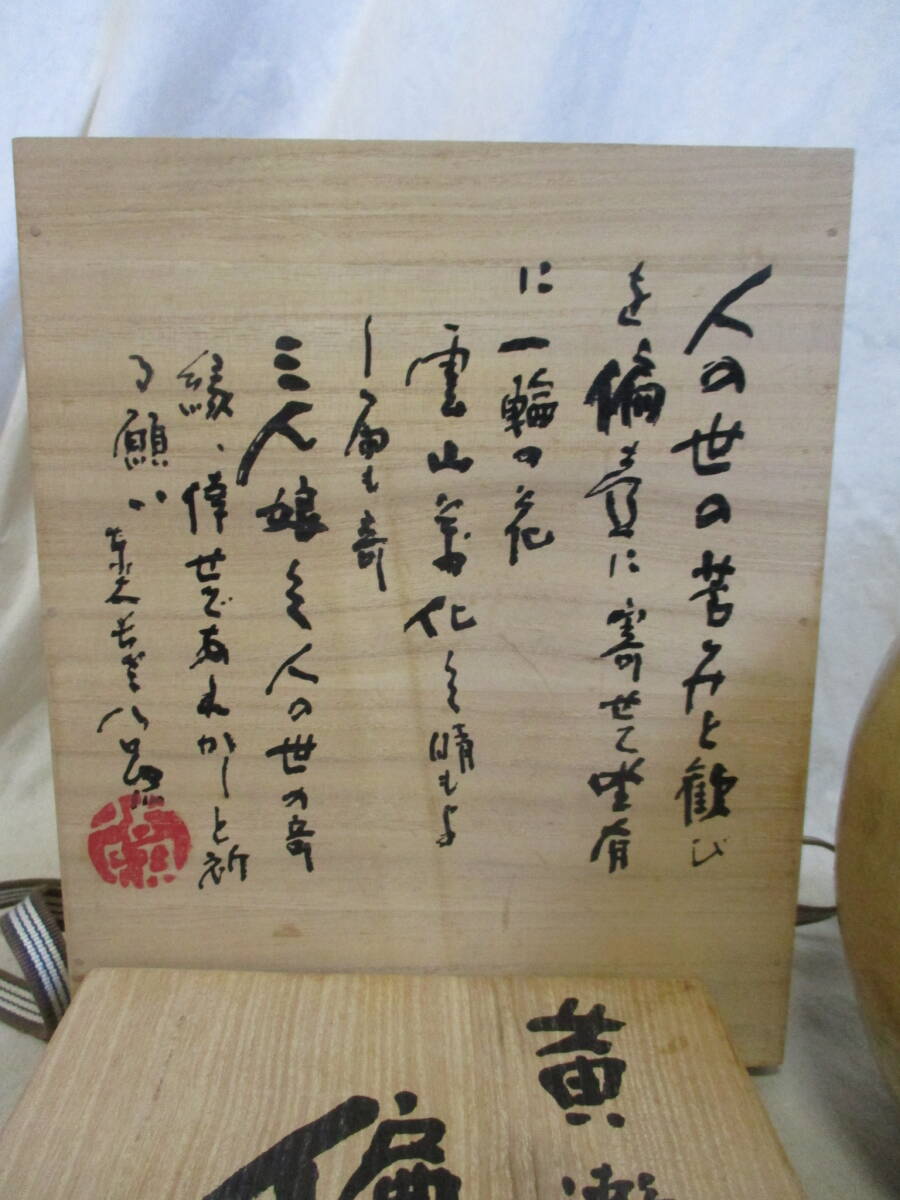 人の世の苦みと歓び
を偏壷に寄せて
に一輪の花
雲山萬化して晴もよ
し雨も奇
三人娘して人の世の奇
縁、偉せであれかしと祈
る願い
黄瀬
偏